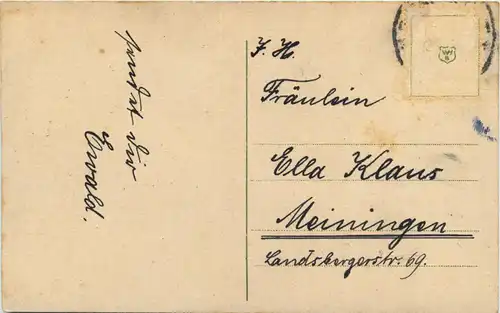 sendet dir
Ewald.
F. H.
Fräulein
Ella Klaus
Meiningen
Landsbergerstr. 69.